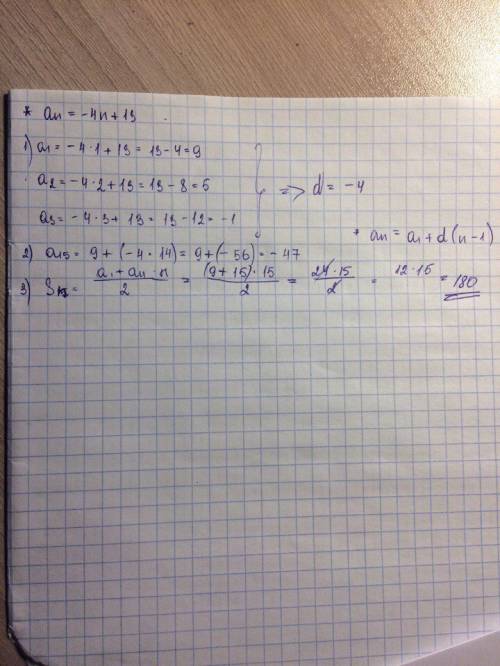 * an = -4n+13
1) a1 = -4·1+13 = 13-4=9
a2 = -4·2+13=13-8=5
a3 = -4·3+13=13-12=-1
=> d = -4
* an = a1 + d(n-1)
2) a15 = 9+(-4·14)=9+(-56)=-47
3) S = (a1+an·n)/2 = ((9+15)·15)/2 = (24·15)/2 = 12·15 = 180